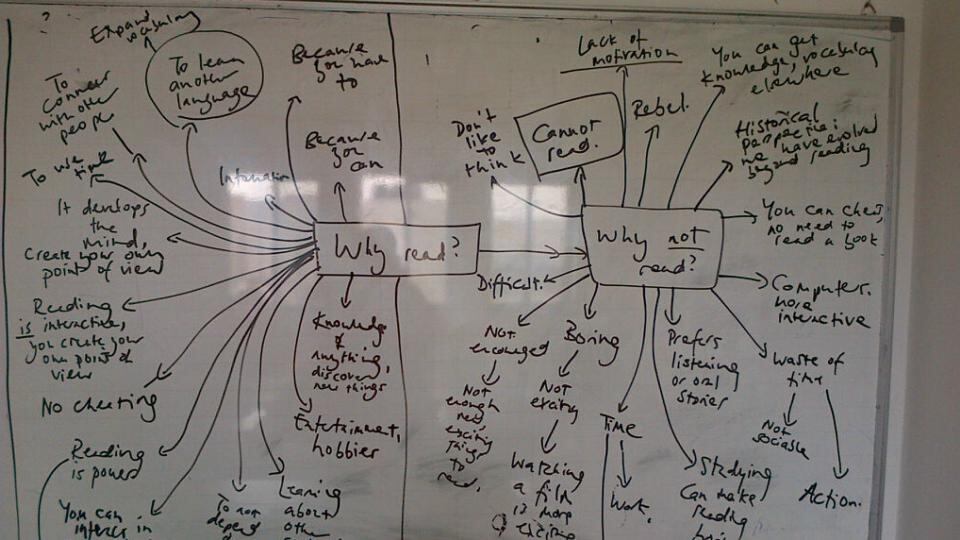 ?
Expand
vocabulary
To learn
another
language
Because
you have
to
To
connect
with other
people
Because
you
can
To
Information
It develops
the
mind,
Create your own
point of view
Why read?
Reading
is interactive,
you create your
own point of
view
Knowledge
&
anything,
discover
new things
No cheating
Entertainment,
hobbies
Reading
is power
You can
in
To not
depend
Learning
about
other
Lack of
motivation
You can get
knowledge, vocabulary
elsewhere
Don't
like
to
think
Cannot
read.
Rebel.
Historical
perspective:
we have evolved
beyond reading
Why not
read?
You can cheat,
no need to
read a book
Difficult.
Computer.
more
interactive
Not
encouraged
Boring
Prefers
listening
or oral
stories
Waste of
time
Not
enough
new,
exciting
things
to
read.
Not
exciting
Time
Not
sociable
Watching
a film
is more
exciting
Work.
Studying
Can make
reading
Action.